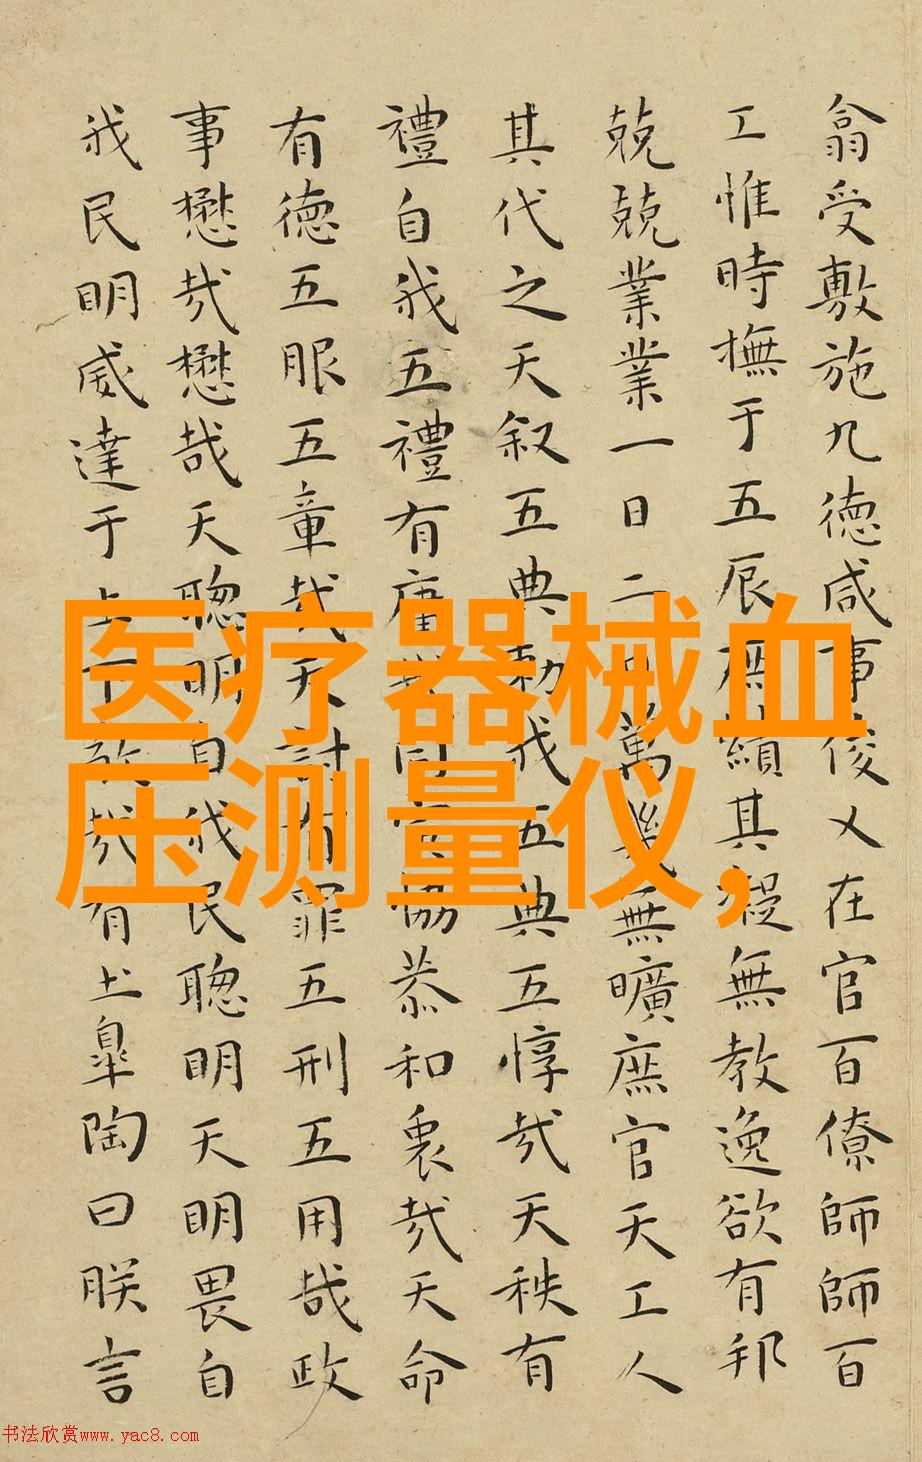 翕受敷施九徳咸事俊乂在官百僚師師百
工惟時撫于五辰庶績其凝無教逸欲有邦
兢兢業業一日二日萬幾無曠庶官天工人
其代之天叙五典勑我五典五惇哉天秩有
禮自我五禮有庸哉同寅協恭和衷哉天命
有徳五服五章哉天討有罪五刑五用哉政
事懋哉懋哉天聦明自我民聦明天明畏自
我民明威達于上下敬哉有土皋陶曰朕言
医疗器械血
压测量仪,
书法欣赏www.yac8.com